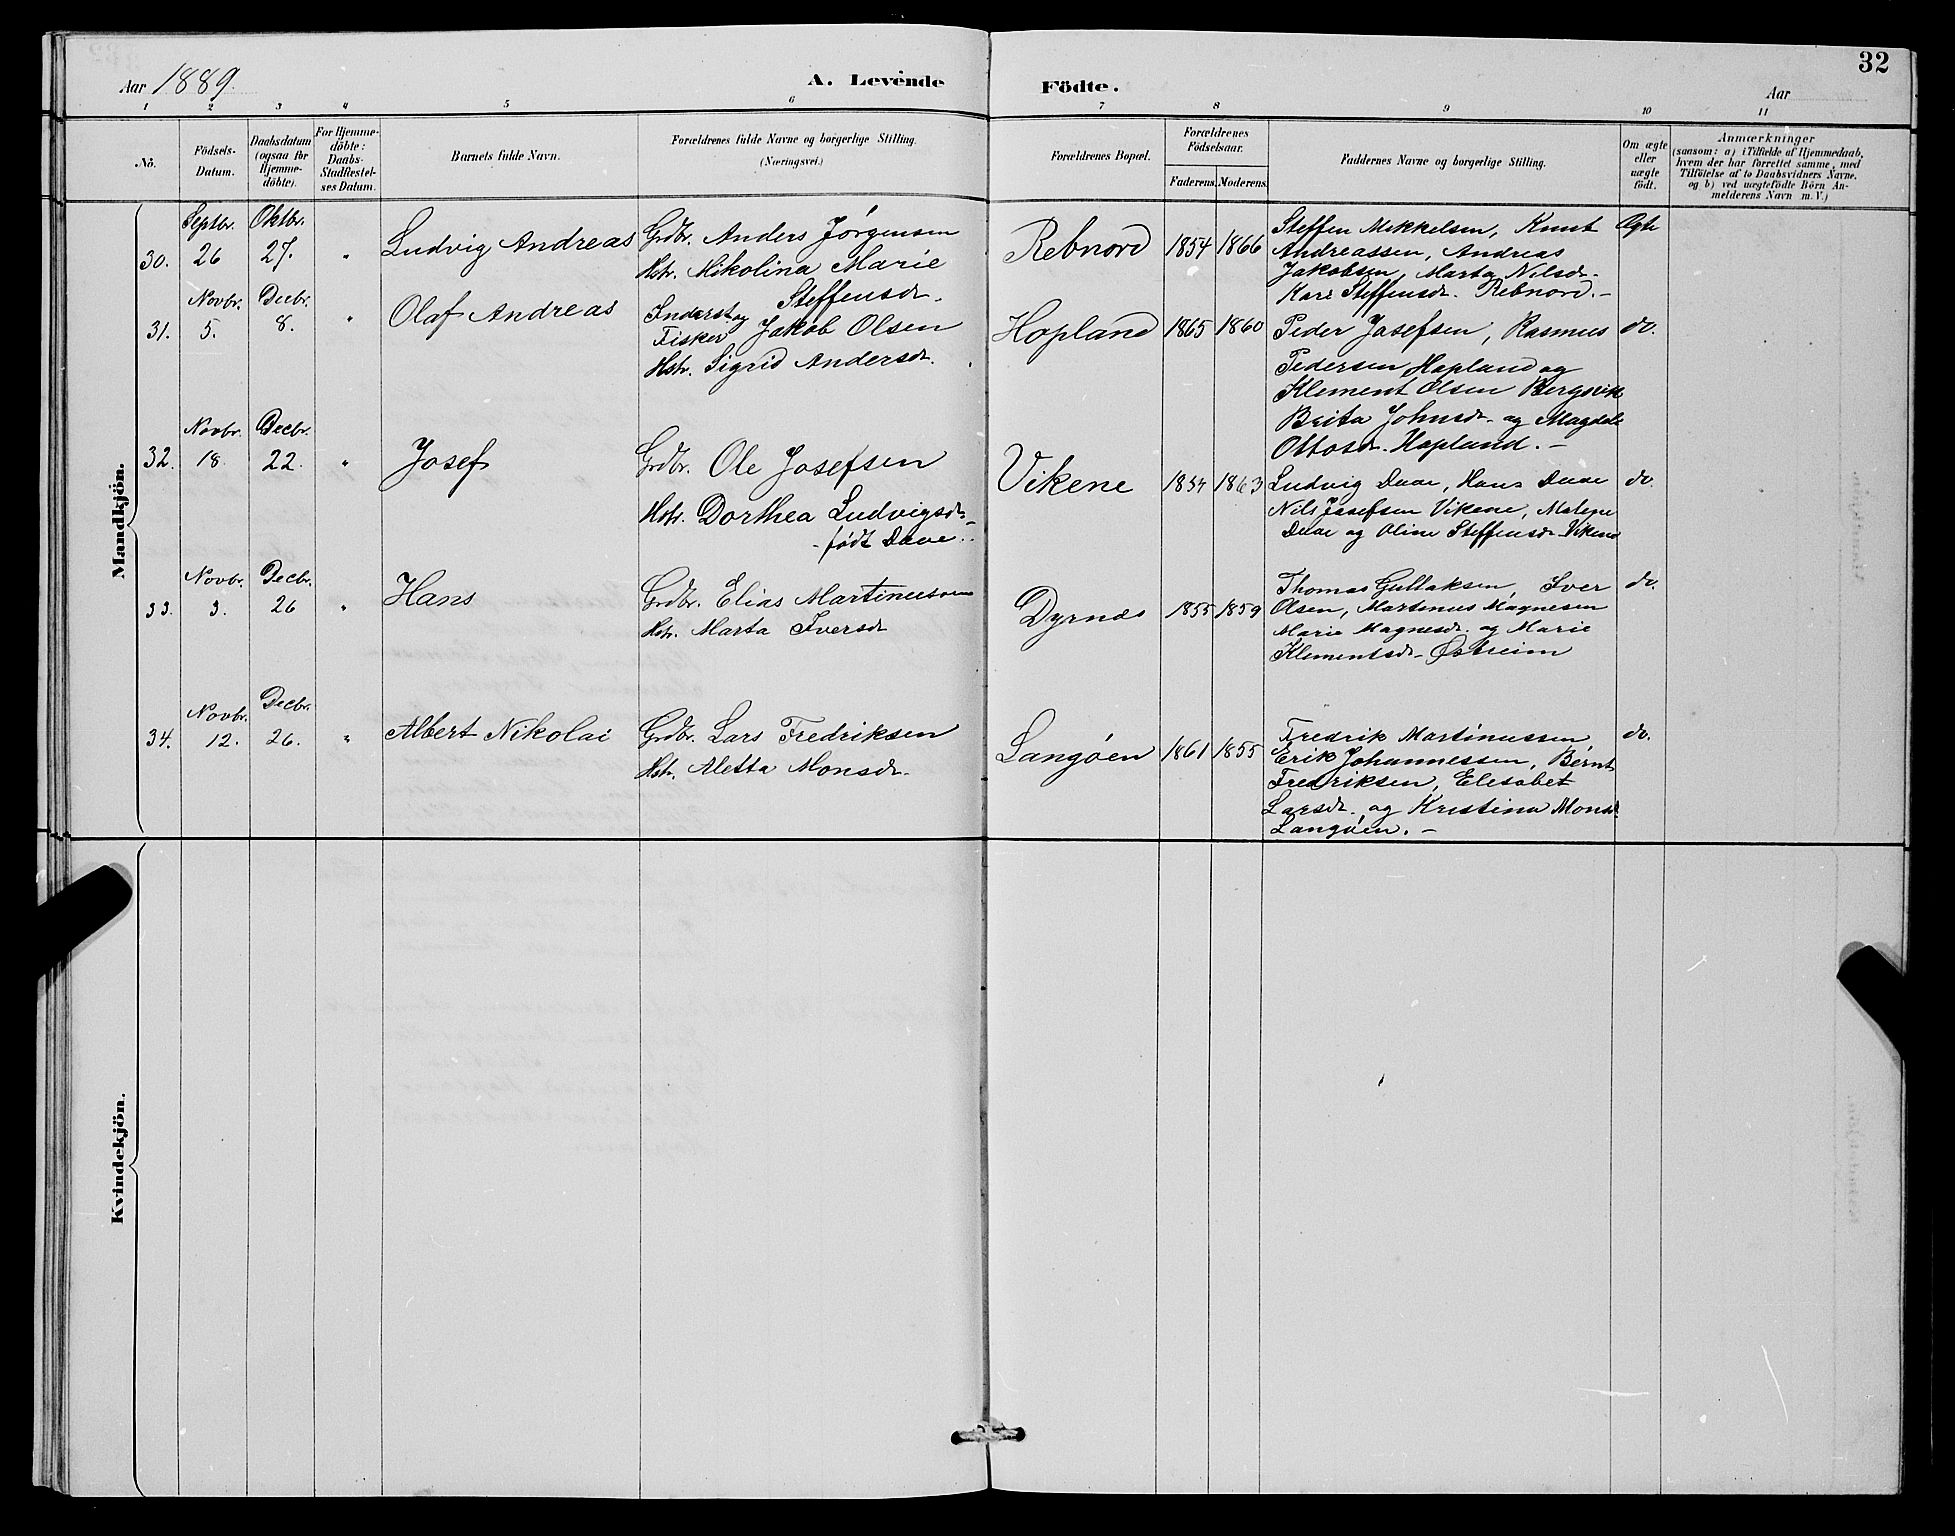 32
Aar 1889.
A. Levende Födte.
Aar
1 2 3 4 5 6 7 8 9 10 11
No.
Födsels-Datum.
Daabsdatum (ogsaa for Hjemme-döbte).
For Hjemme-döbte: Daabs-Stadfæstel-ses Datum.
Barnets fulde Navn.
Forældrenes fulde Navne og borgerlige Stilling.
(Næringsvei.)
Forældrenes Bopæl.
Forældrenes Födselsaar.
Faderens. Moderens.
Faddernes Navne og borgerlige Stilling.
Om ægte eller uægte födt.
Anmærkninger
(saasom: a) i Tilfælde af Hjemmedaab,
hvem der har forrettet samme, med
Tilföielse af to Daabsvidners Navne.
og b) ved uægtefödte Börn An-
melderens Navn m. V.)
Mandkjön.
30. Septbr. 26 Oktbr. 27. " Ludvig Andreas
Grdbr. Anders Jørgensen
Hstr. Nikolina Marie
Steffensdr.
Rebnord 1854 1866
Steffen Mikkelsen, Knut
Andreassen, Andreas
Jakobsen, Marta Nilsdr.
Kari Steffensdr. Rebnord. -
Ægte
31. Novbr. 5. Decbr. 8. " Olaf Andreas
Inderst og
Fisker Jakob Olsen
Hstr. Sigrid Andersdr.
Hopland 1865 1860
Peder Josefsen, Rasmus
Pedersen Hopland og
Klement Olsen Bergsvik
Brita Johnsdr. og Magdele
Ottosdr. Hopland. -
do.
32. Novbr. 18. Decbr. 22. " Josef
Grdbr. Ole Josefsen
Hstr. Dorthea Ludvigsdr.
- født Daae.
Vikene 1854 1863
Ludvig Daae, Hans Daae
Nils Josefsen Vikene, Malene
Daae og Oline Steffensdr. Vikene
do.
33. Novbr. 3. Decbr. 26 " Hans
Grdbr. Elias Martinussen
Hstr. Marta Iversdr
Dyrnæs 1855 1859
Thomas Gullaksen, Iver
Olsen, Martinus Magnesen
Marie Magnesdr. og Marie
Klementsdr. Østreim
do.
34. Novbr. 12. Decbr. 26. " Albert Nikolai
Grdbr. Lars Fredriksen
Hstr. Aletta Monsdr.
Langøen 1861 1855
Fredrik Martinussen
Erik Johannessen, Bernt
Fredriksen, Elesabet
Larsdr. og Kristina Monsdr.
Langøen. -
do.
Kvindekjön.